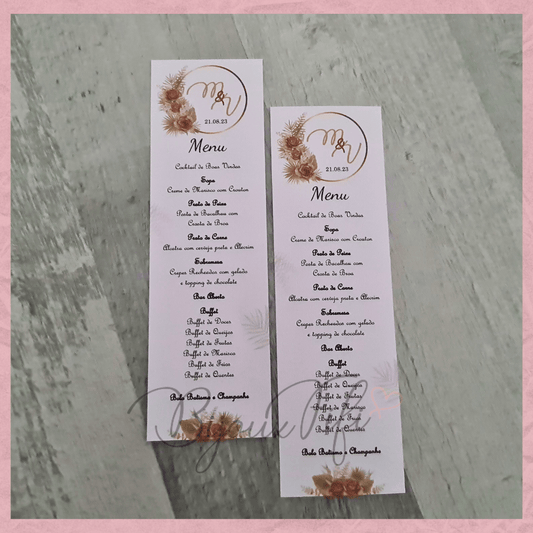 M&V
21.08.23
Menu
Cocktail de Boas Vindas
Sopa
Creme de Marisco com Crouton
Posta de Peixe
Posta de Bacalhau com
Crosta de Broa
Posta de Carne
Alcatra com cerveja preta e Alecrim
Sobremesa
Crepes Recheados com gelado
e topping de chocolate
Bar Aberto
Buffet
Buffet de Doces
Buffet de Queijos
Buffet de Frutas
Buffet de Marisco
Buffet de Frios
Buffet de Quentes
Bolo Batismo e Champanhe
M&V
21.08.23
Menu
Cocktail de Boas Vindas
Sopa
Creme de Marisco com Crouton
Posta de Peixe
Posta de Bacalhau com
Crosta de Broa
Posta de Carne
Alcatra com cerveja preta e Alecrim
Sobremesa
Crepes Recheados com gelado
e topping de chocolate
Bar Aberto
Buffet
Buffet de Doces
Buffet de Queijos
Buffet de Frutas
Buffet de Marisco
Buffet de Frios
Buffet de Quentes
Bolo Batismo e Champanhe